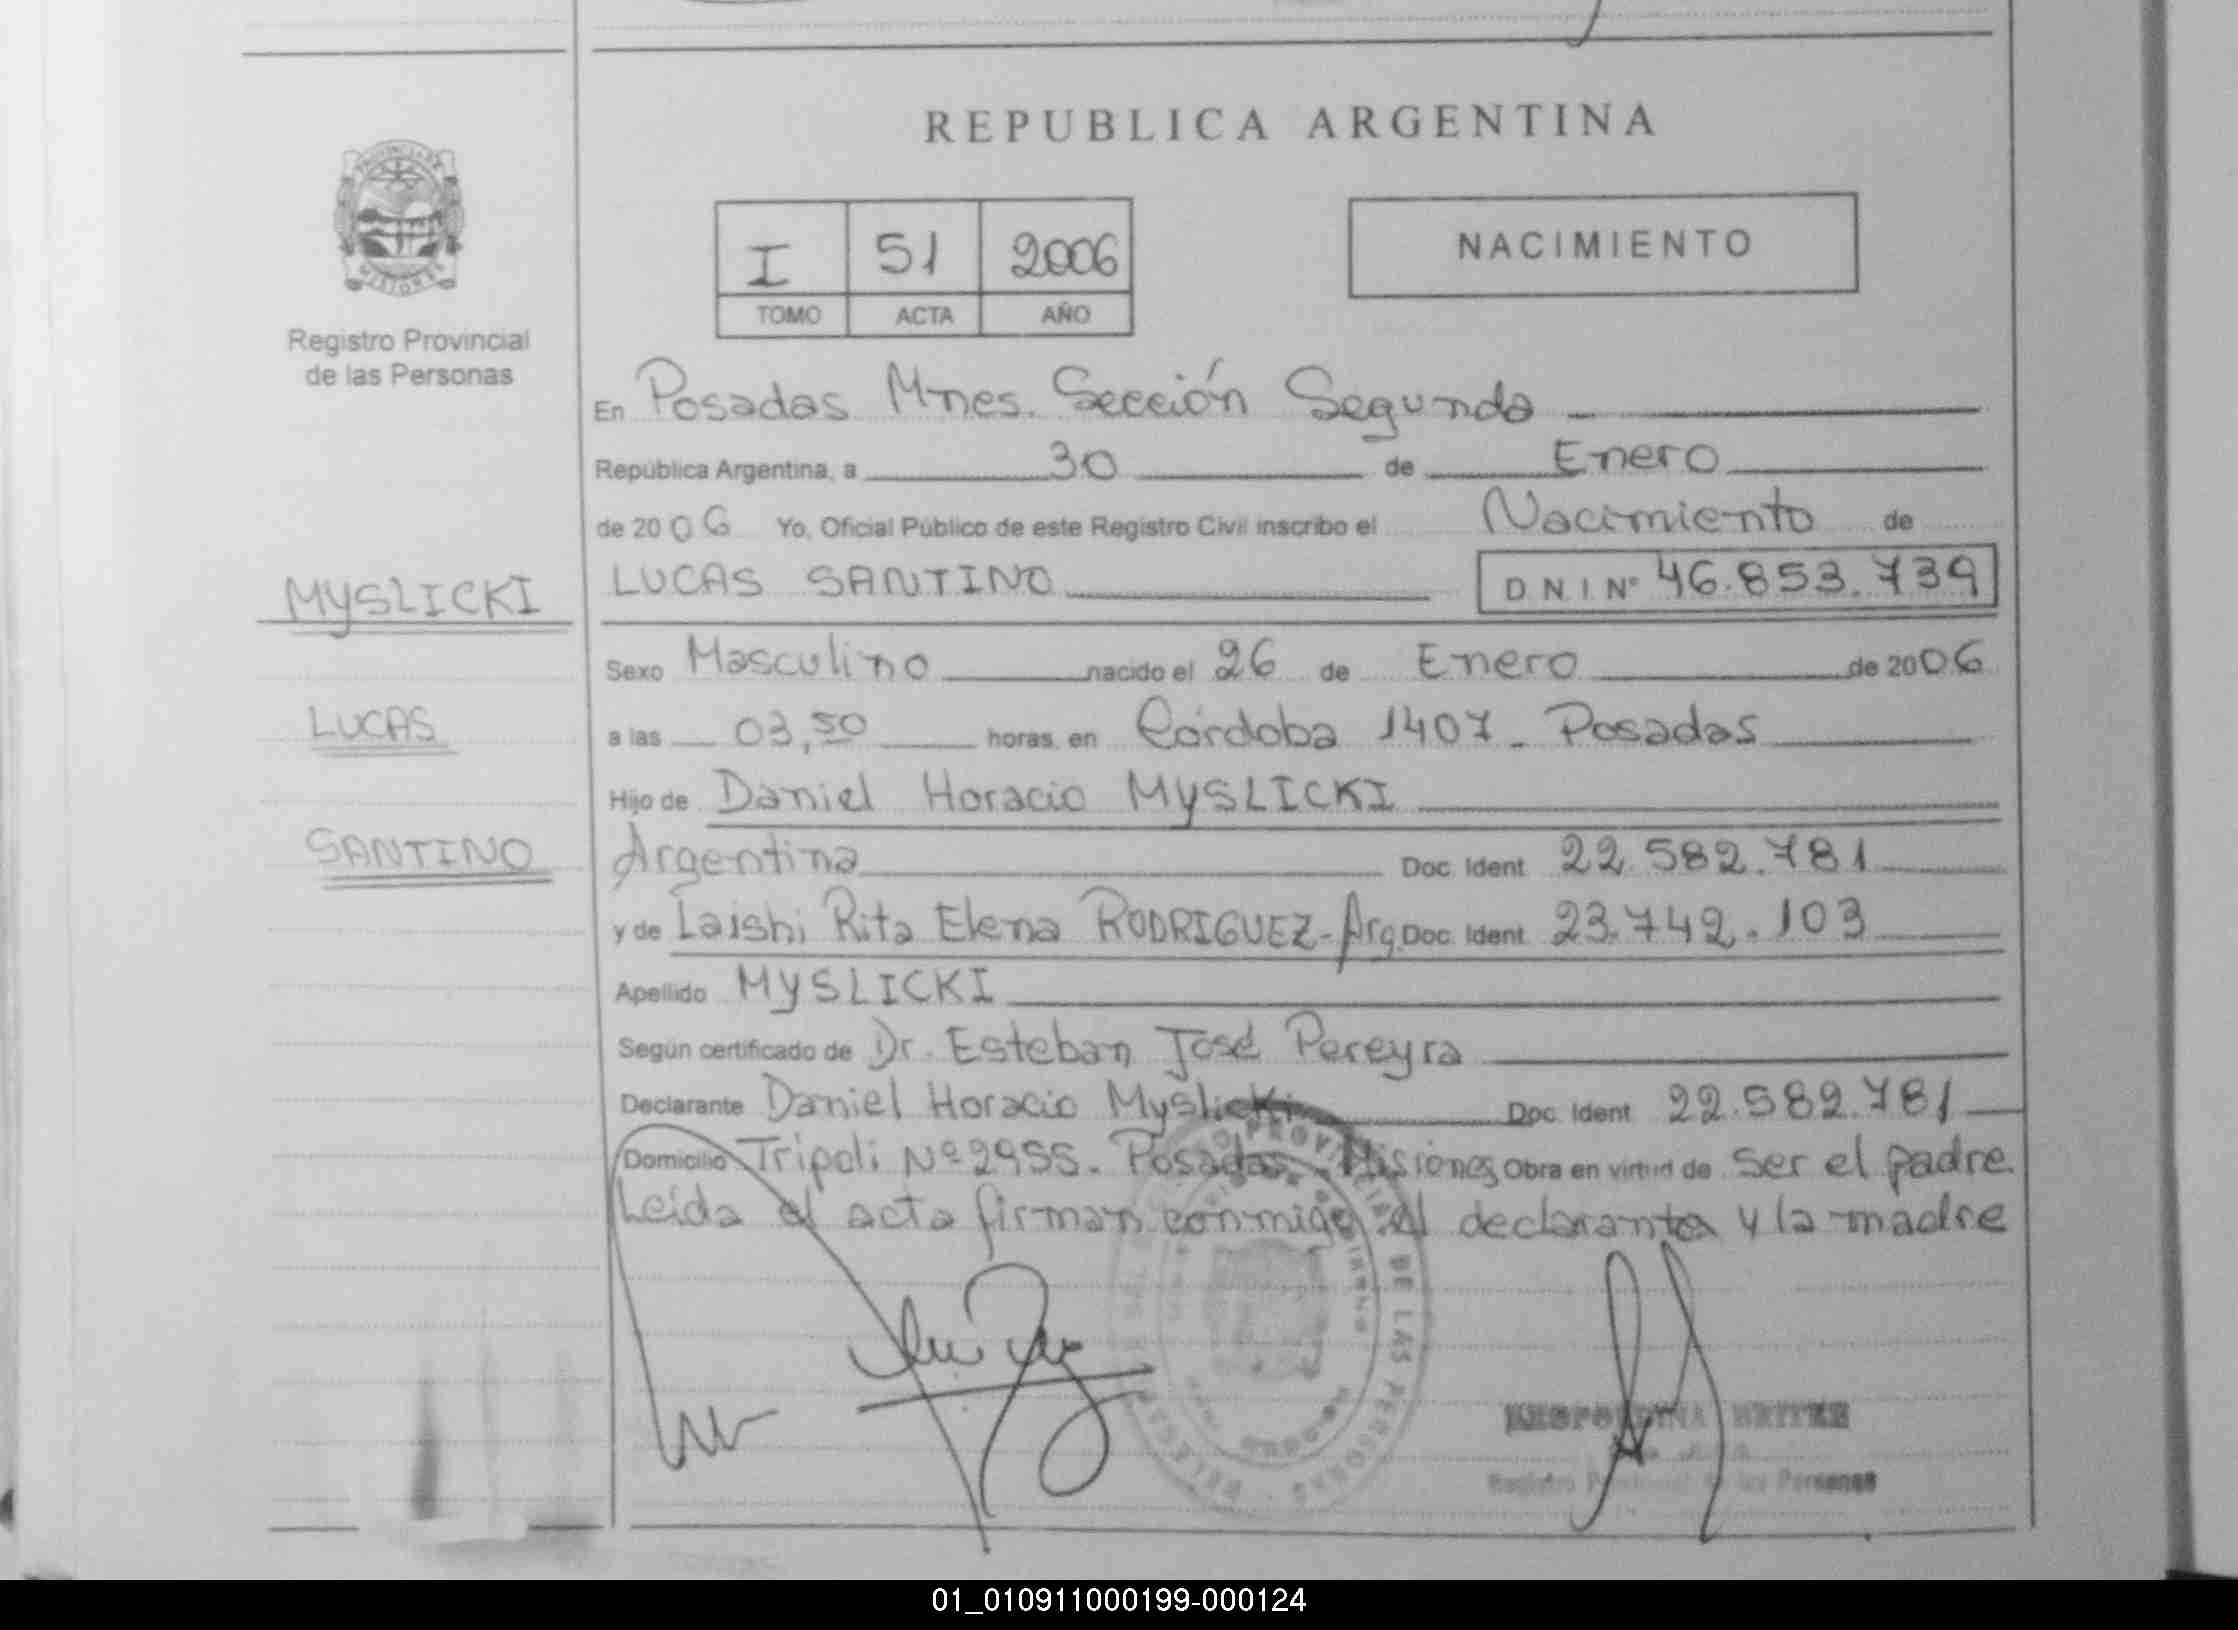 REPUBLICA ARGENTINA
PROVINCIA DE
MISIONES
Registro Provincial
de las Personas
I 51 2006
TOMO ACTA AÑO
NACIMIENTO
En Posadas Mnes. Sección Segunda
República Argentina, a 30 de Enero
de 2006 Yo, Oficial Público de este Registro Civil inscribo el Nacimiento de
LUCAS SANTINO D N I Nº 46.853.739
MYSLICKI
LUCAS
SANTINO
Sexo Masculino nacido el 26 de Enero de 2006
a las 03,50 horas, en Córdoba 1407 - Posadas
Hijo de Daniel Horacio MYSLICKI
Argentina Doc. Ident. 22.582.781
y de Laishi Rita Elena RODRIGUEZ - Arg. Doc. Ident. 23.742.103
Apellido MYSLICKI
Según certificado de Dr. Esteban José Pereyra
Declarante Daniel Horacio Myslicki Doc. Ident. 22.582.781
Domicilio Tripoli Nº 2955. Posadas. Misiones Obra en virtud de ser el padre.
Leída el acta firman conmigo el declarante y la madre
PROVINCIAL DE LAS PERSONAS
Registro Provincial de las Personas
01_010911000199-000124